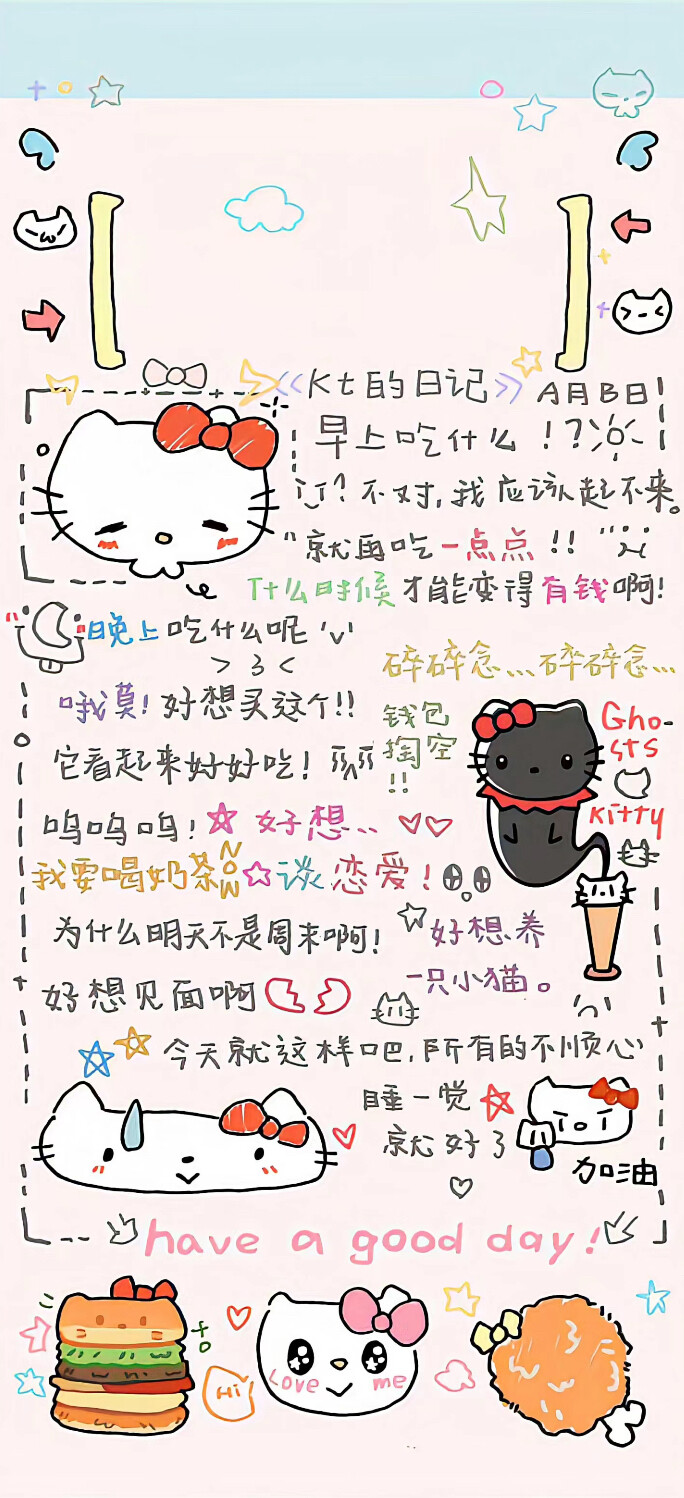 《Kt的日记》 A月B日
早上吃什么！？
不对，我应该起不来。
就再吃一点点！！
什么时候才能变得有钱啊！
晚上吃什么呢 'v'
> 3 <
碎碎念...碎碎念...
哦莫！好想买这个！！
钱包
掏空
!!
它看起来好好吃！
Gho-
sts
Kitty
呜呜呜！☆好想..♡♡
我要喝奶茶NOW☆谈恋爱！
为什么明天不是周末啊！
☆好想养
一只小猫。
好想见面啊
今天就这样吧，所有的不顺心
睡一觉
就好了
加油
have a good day!
Hi
Love me